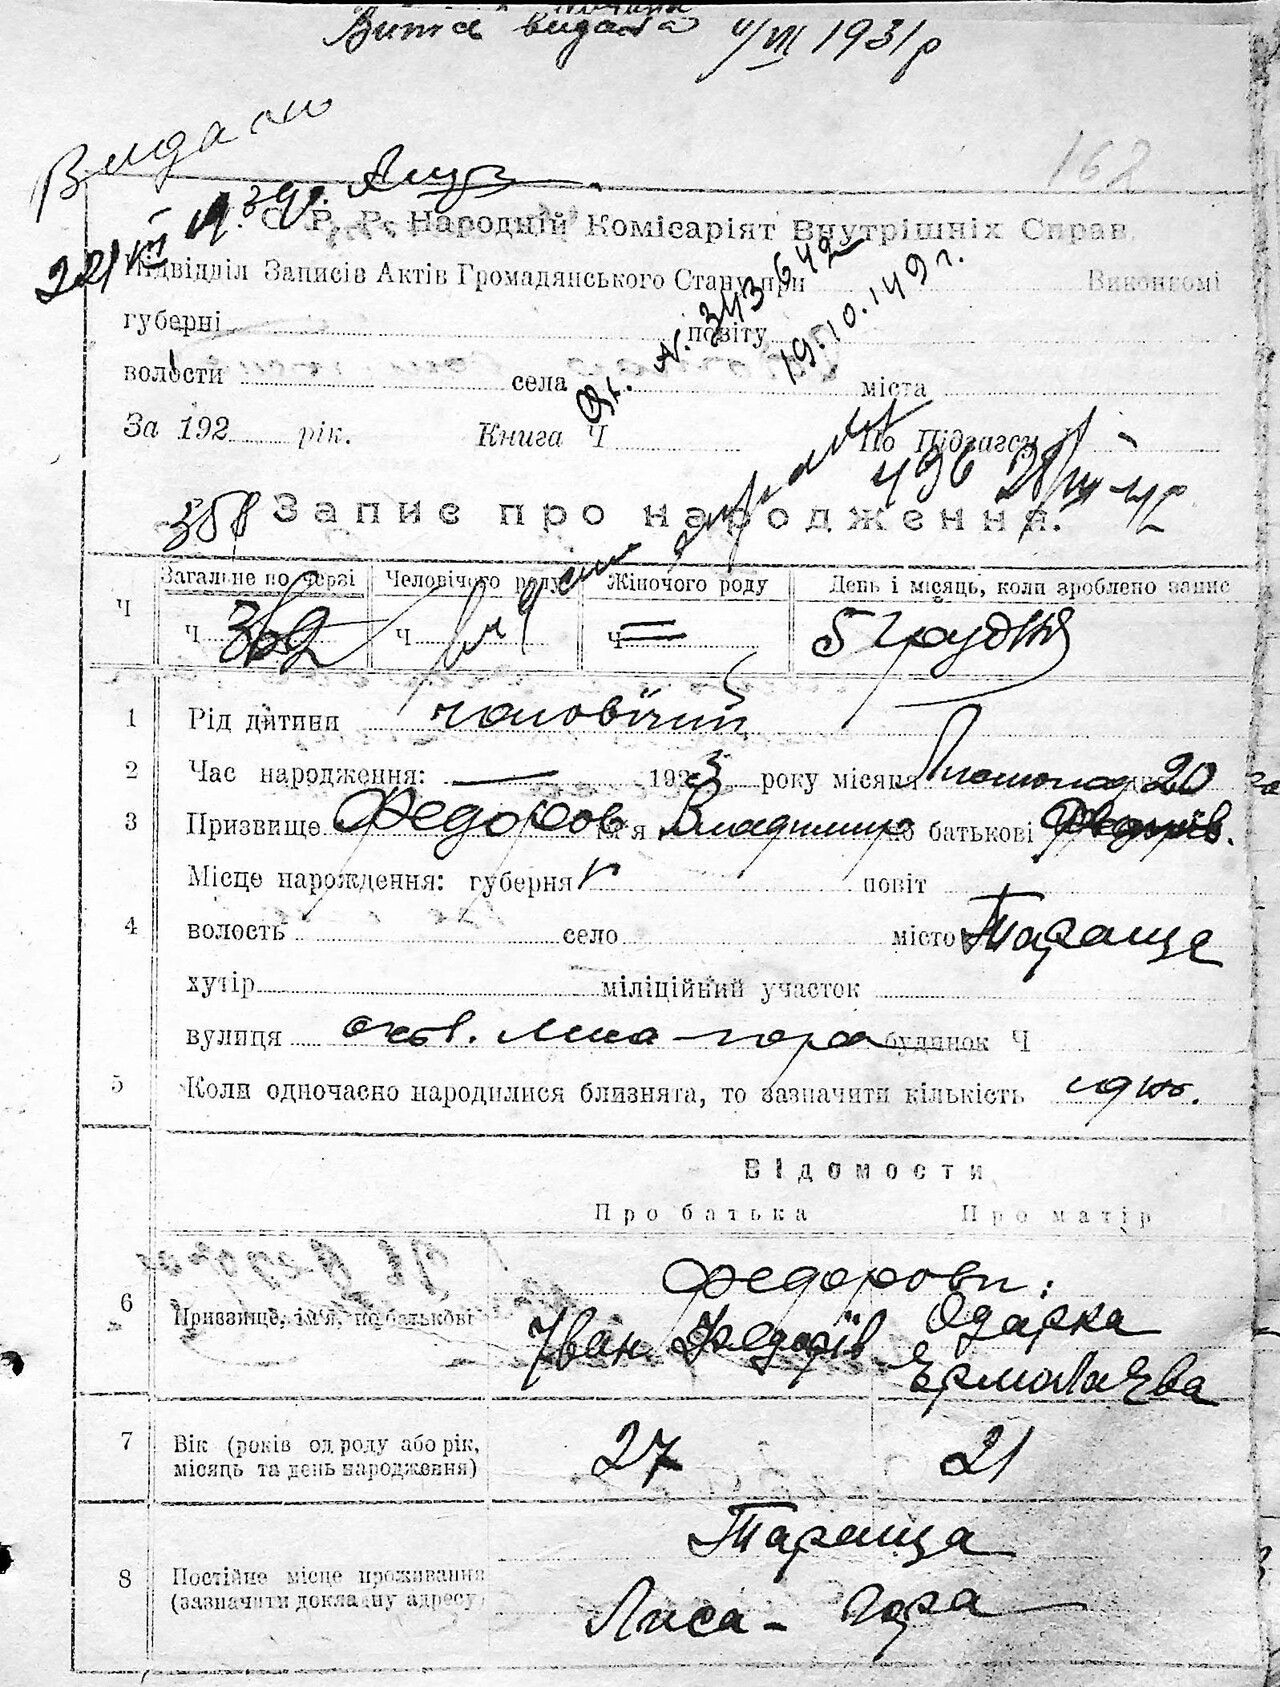 видана 4/VII 1931р
Видано
162
С. Р. Р. Народній Комісаріят Внутрішніх Справ.
Підвідділ Записів Актів Громадянського Стану при Виконкомі
губерні повіту
волости села міста
№ 343642
19.10.149 г.
За 192 рік. Книга Ч По Підзагсу
496
358 Запис про народження.
Ч Загальне по черзі Человічого роду Жіночого роду День і місяць, коли зроблено запис
Ч 362 Ч Ч = 5 грудня
1 Рід дитини чоловічий
2 Час народження: — 1923 року місяця Листопад 20
3 Призвище Федоров Імʼя Владимир по батькові
Місце народження: губерня повіт
4 волость село місто Тараще
хутір міліційний участок
вулиця Лиса-гора будинок Ч
5 Коли одночасно народилися близнята, то зазначити кількість одно.
Відомости
Про батька Про матір
6 Призвище, імʼя, по батькові Федорови:
Іван Федорів Одарка
Ермолаєва
7 Вік (років од роду або рік, місяць та день народження) 27 21
8 Постійне місце проживання (зазначити докладну адресу) Тараща
Лиса-гора